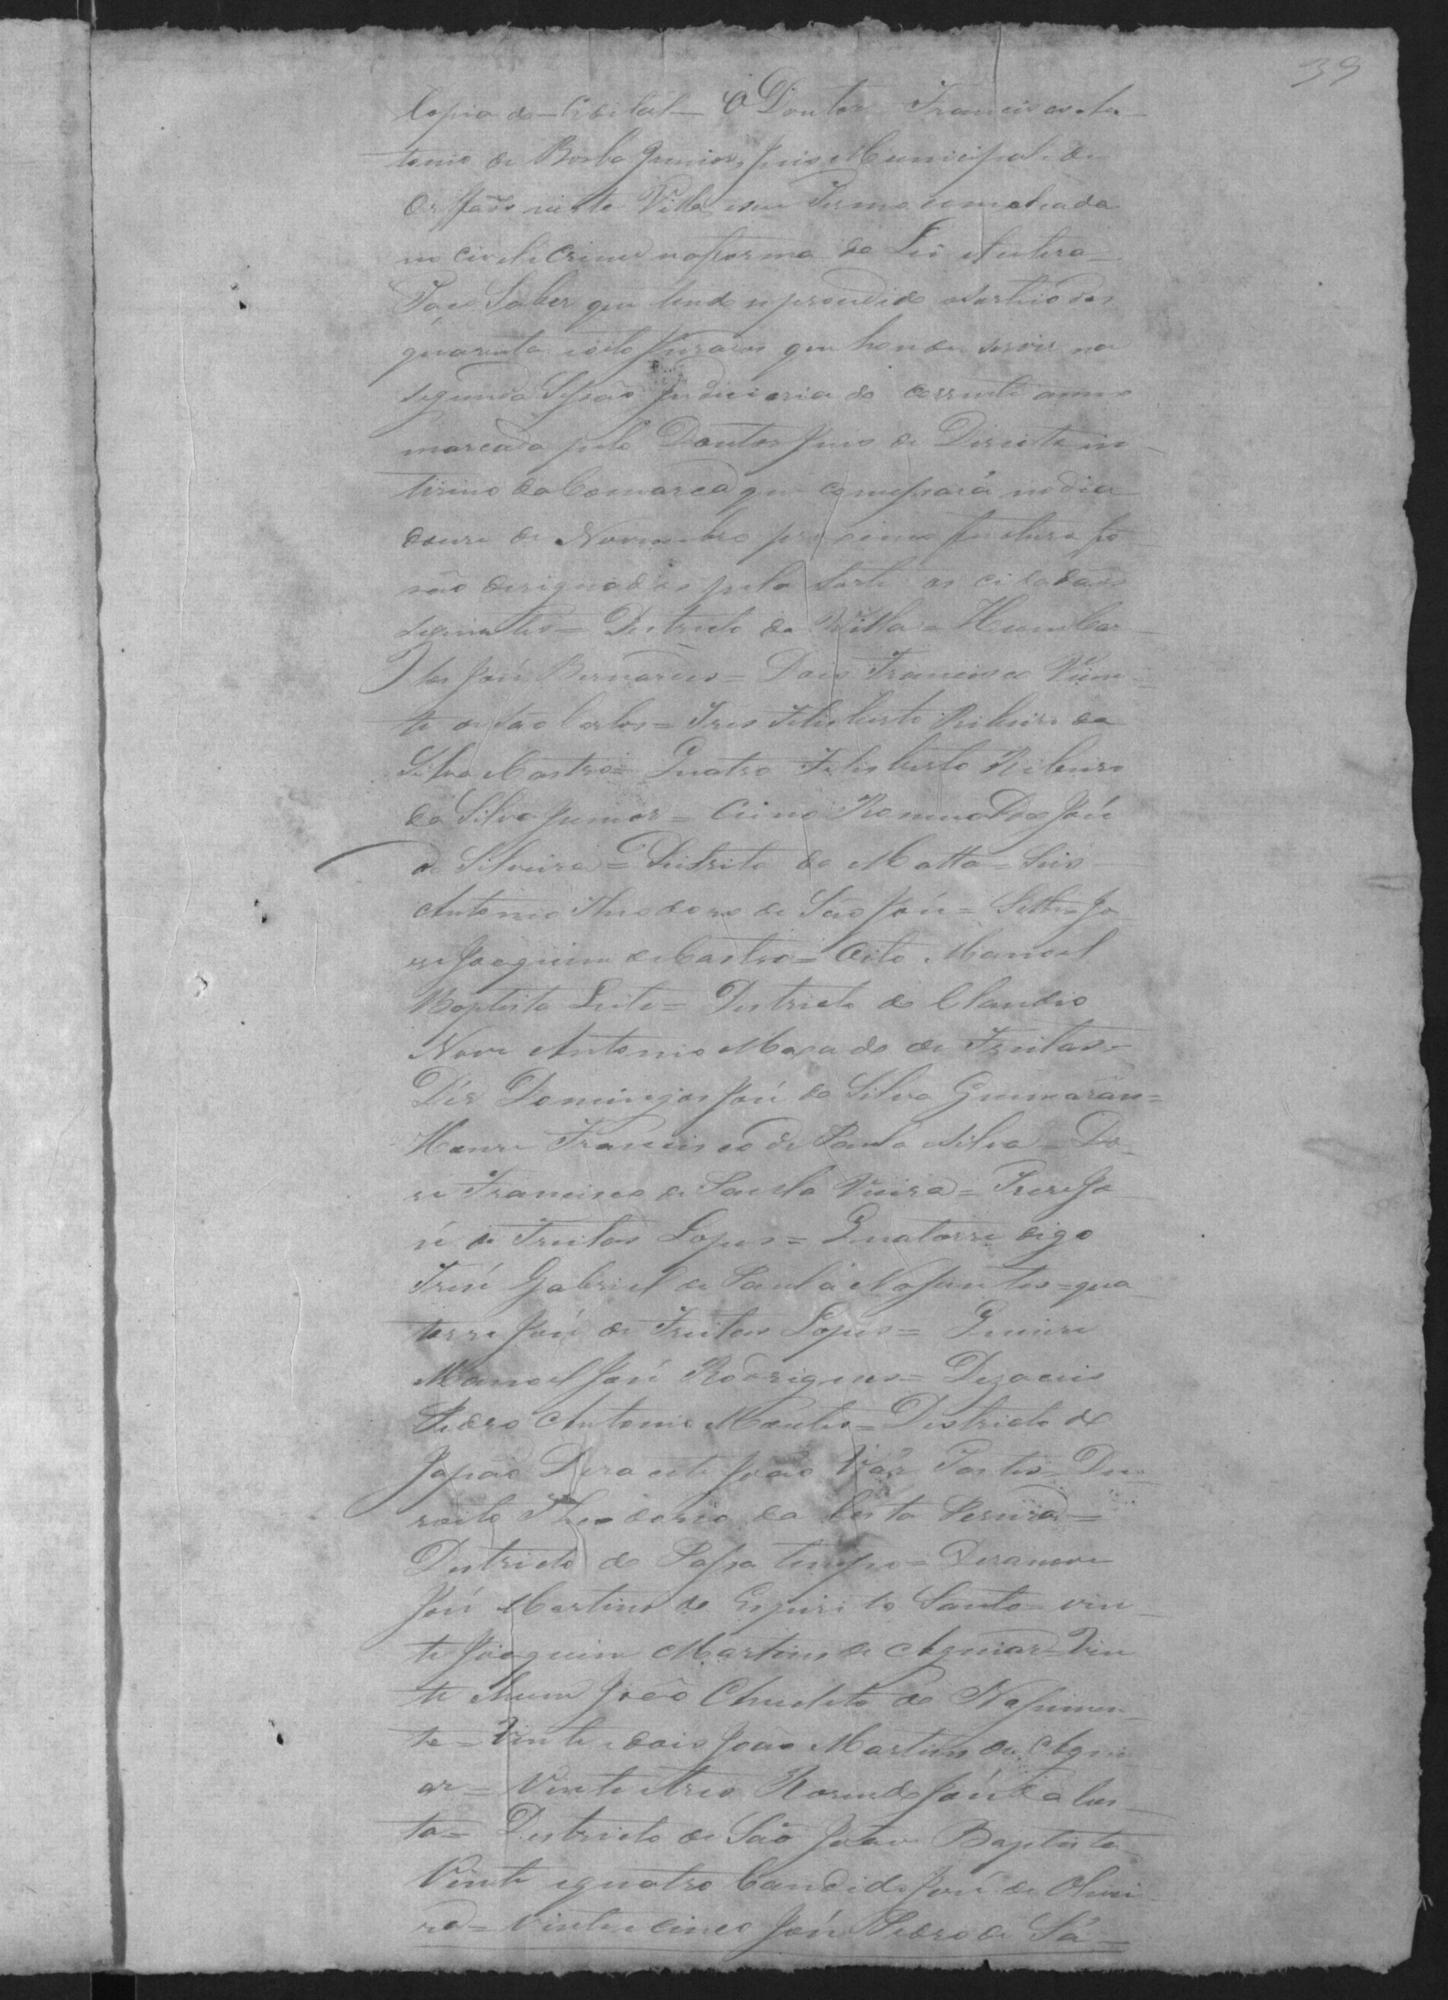 39
Copia do Edital O Doutor Francisco An-
tonio de Borba Junior, Juis Municipal e de
Orfãos nesta Villa e seu Termo
no civel e crime na forma da Lei
Faço Saber que tendo se procedido o Sorteio dos
quarenta e oito Jurados que han de servir na
segunda Sessão Judiciaria do corrente anno
marcada pelo Doutor Juis de Direito in-
terino da Comarca que começará no dia
douze de Novembro proximo futuro fo-
rão designados pela Sorte os cidadãos
seguintes = Districto da Villa = Hum Car-
los José Bernardes = Dois Francisco Vicen-
te de São Carlos = Tres Felisberto Ribeiro da
Silva Castro = Quatro Felisberto Ribeiro
da Silva Junior = Cinco José
da Silveira = Districto da Matta = Seis
Antonio Theodoro de São José = Sette Jo-
se Joaquim de Castro = Oito Manoel
Baptista Leite = Districto do Claudio
Nove Antonio Machado de Freitas =
Dés Domingos José da Silva Guimarães =
Honze Francisco de Paula e Silva = Do-
ze Francisco de Paula Vieira = Treze Jo-
sé de Freitas Lopes = Quatorze digo
Trese Gabriel de Paula Nascentes = qua-
torze José de Freitas Lopes = Quinze
Manoel José Rodrigues = Dezaceis
Pedro Antonio = Districto do
Japão Dezacete João Vaz Dez-
roito Theodorio da Costa Pereira =
Districto do Passa tempo = Dezanove
José Martins do Espirito Santo = vin-
te Joaquim Martins de Aguiar = Vin
te e hum João do Nascimen-
to = Vinte e dois João Martins de Agui
ar = Vinte e tres José da Cos-
ta = Districto de São João Baptista
Vinte e quatro Candido José de Olivei
ra = Vinte e cinco José Pedro de Sá =